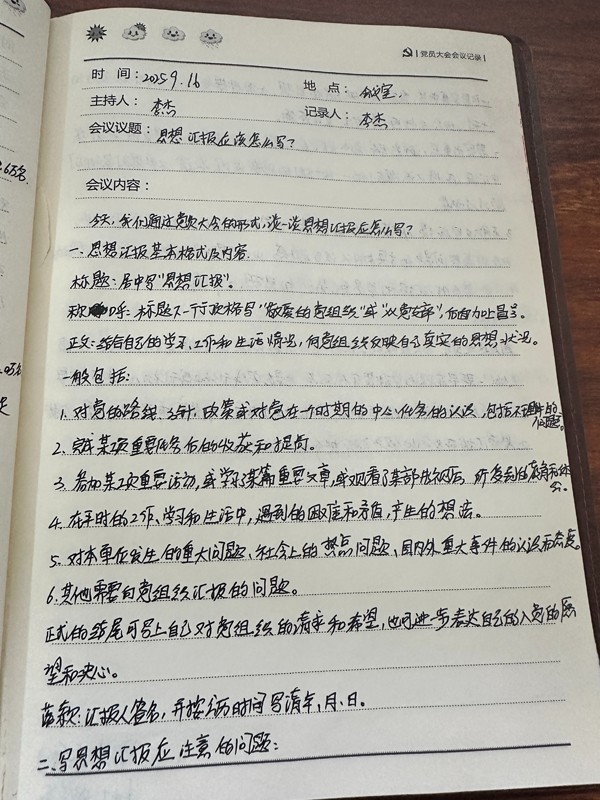 党员大会会议记录
时 间：2025 9.16 地 点：会议室.
主持人：李杰 记录人：李杰
会议议题：思想汇报应该怎么写？
会议内容：
今天，我们通过党员大会的形式，谈一谈思想汇报应怎么写？
一、思想汇报基本格式及内容.
标题：居中写"思想汇报"。
称呼：标题下一行顶格写"敬爱的党组织"或"××党支部"，后面加上冒号。
正文：结合自己的学习、工作和生活情况，向党组织反映自己真实的思想状况。
一般包括：
1. 对党的路线、方针、政策或对党在一个时期的中心任务的认识，包括不理解的问题。
2. 完成某项重要任务后的收获和提高。
3. 参加某项重要活动，或学习了某篇重要文章，或观看了某部电视后，所受到的教育和体会。
4. 在平时的工作、学习和生活中，遇到的困难和矛盾，产生的想法。
5. 对本单位发生的重大问题、社会上的热点问题、国内外重大事件的认识和态度。
6. 其他需要向党组织汇报的问题。
正式的结尾可写上自己对党组织的请求和希望，也可进一步表达自己的入党的愿
望和决心。
落款：汇报人签名，并按公历时间写清年、月、日。
二、写思想汇报应注意的问题：